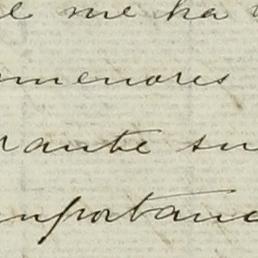 me ha
menores
rante su
mportanc